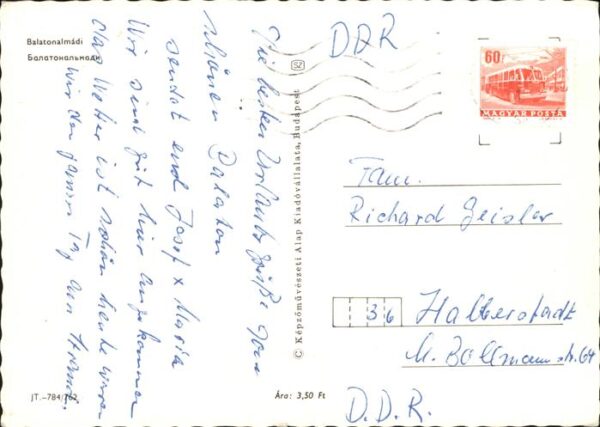 Balatonalmádi
Балатональмади
Die besten Urlaubsgrüße vom
schönen Balaton
sendet euch Josef x Maria
Wir sind gut hier angekommen
das Wetter ist schön heute waren
wir den ganzen Tag am Strand.
JT.-784/762
© Képzőművészeti Alap Kiadóvállalata, Budapest
SZ
Ára: 3,50 Ft
DDR
60f
MAGYAR POSTA
Fam.
Richard Geisler
36 Halberstadt
M. Bollmann str. 64
D.D.R.